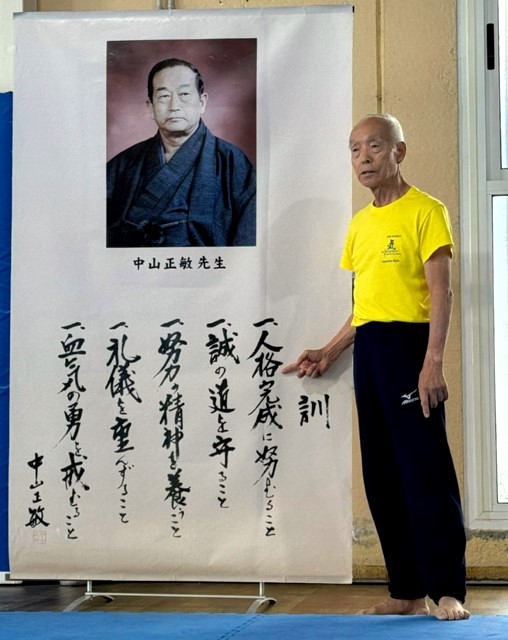 中山正敏 先生
訓
一、人格完成に努むること
一、誠の道を守ること
一、努力の精神を養うこと
一、礼儀を重んずること
一、血気の勇を戒むること
中山正敏
氣
MIZUNO